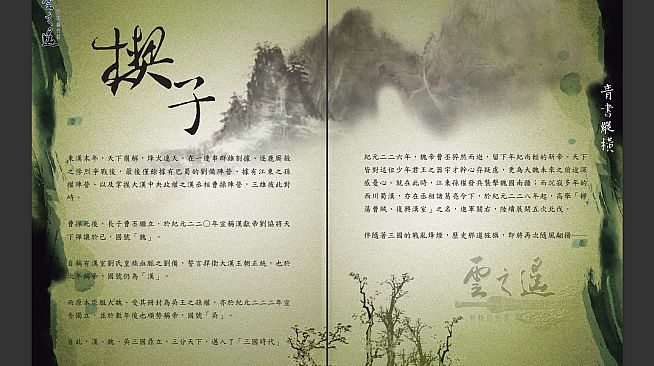 雲之遙
楔子
東漢末年，天下崩解，烽火連天。在一連串群雄割據、逐鹿廝殺
之慘烈爭戰後，最後僅餘據有巴蜀的劉備陣營、據有江東之孫
權陣營、以及掌握大漢中央政權之漢丞相曹操陣營，三雄彼此對
峙。
曹操死後，長子曹丕繼立，於紀元二二〇年宣稱漢獻帝劉協將天
下禪讓於己，國號「魏」。
自稱有漢室劉氏皇族血脈之劉備，誓言捍衛大漢王朝正統，也於
次年稱帝，國號仍為「漢」。
而原本臣服大魏、受其冊封為吳王之孫權，亦於紀元二二二年宣
告獨立，並於數年後也順勢稱帝，國號「吳」。
自此，漢、魏、吳三國鼎立，三分天下，邁入了「三國時代」
紀元二二六年，魏帝曹丕猝然而逝，留下年紀尚輕的新帝。天下
皆對這位少年君王之器宇才幹心存疑慮，更為大魏未來之前途深
感憂心。就在此時，江東孫權發兵襲擊魏國南疆；而沉寂多年的
西川蜀漢，亦在丞相諸葛亮令下，於紀元二二八年起，高舉「掃
蕩曹賊、復興漢室」之名，進軍關右，陸續展開五次北伐。
伴隨著三國的戰亂烽煙，歷史那道旌旗，即將再次隨風翻揚──
青書縱橫
雲之遙